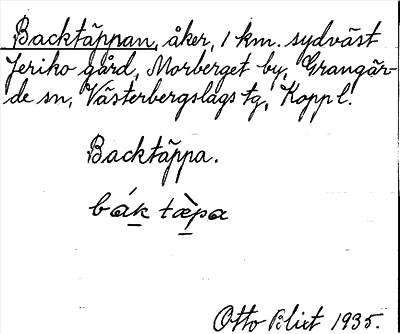 Backtäppan, åker, 1 km. sydväst
Jeriko gård, Morberget by, Grangär-
de sn, Västerbergslags tg, Koppl.
Backtäppa.
bák tæ̀pa
Otto Blixt 1935.